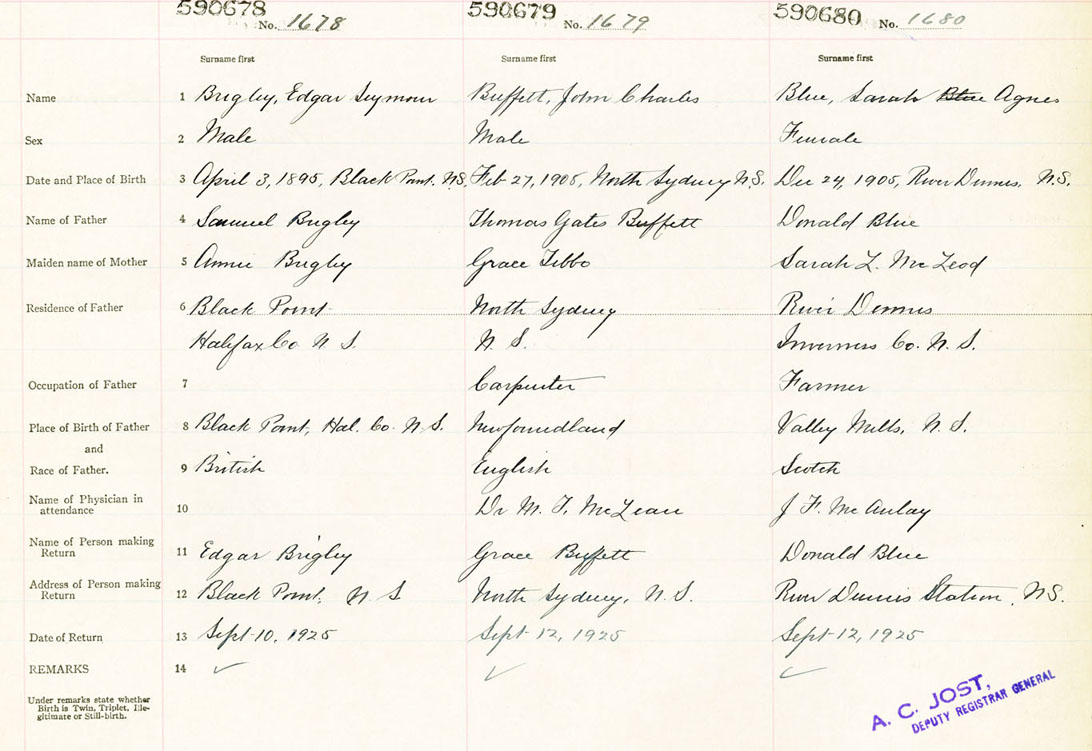 590678 No. 1678 590679 No. 1679 590680 No. 1680
Surname first Surname first Surname first
Name 1 Brigley, Edgar Seymour Buffett, John Charles Blue, Sarah Blue Agnes
Sex 2 Male Male Female
Date and Place of Birth 3 April 3, 1895, Black Point. N.S. Feb 27, 1905, North Sydney N.S. Dec 24, 1905, River Dennis. N.S.
Name of Father 4 Samuel Brigley Thomas Gates Buffett Donald Blue
Maiden name of Mother 5 Annie Brigley Grace Tibbo Sarah L. McLeod
Residence of Father 6 Black Point North Sydney River Dennis
Halifax Co N S. N. S. Inverness Co. N. S.
Occupation of Father 7 Carpenter Farmer
Place of Birth of Father 8 Black Point, Hal. Co. N. S. Newfoundland Valley Mills, N. S.
and
Race of Father. 9 British English Scotch
Name of Physician in
attendance 10 Dr M. T. McLean J F. McAulay
Name of Person making
Return 11 Edgar Brigley Grace Buffett Donald Blue
Address of Person making
Return 12 Black Point. N S North Sydney, N. S. River Dennis Station, N.S.
Date of Return 13 Sept 10, 1925 Sept 12, 1925 Sept 12, 1925
REMARKS 14 ✓ ✓ ✓
Under remarks state whether
Birth is Twin, Triplet, Ille-
gitimate or Still-birth.
A. C. JOST,
DEPUTY REGISTRAR GENERAL